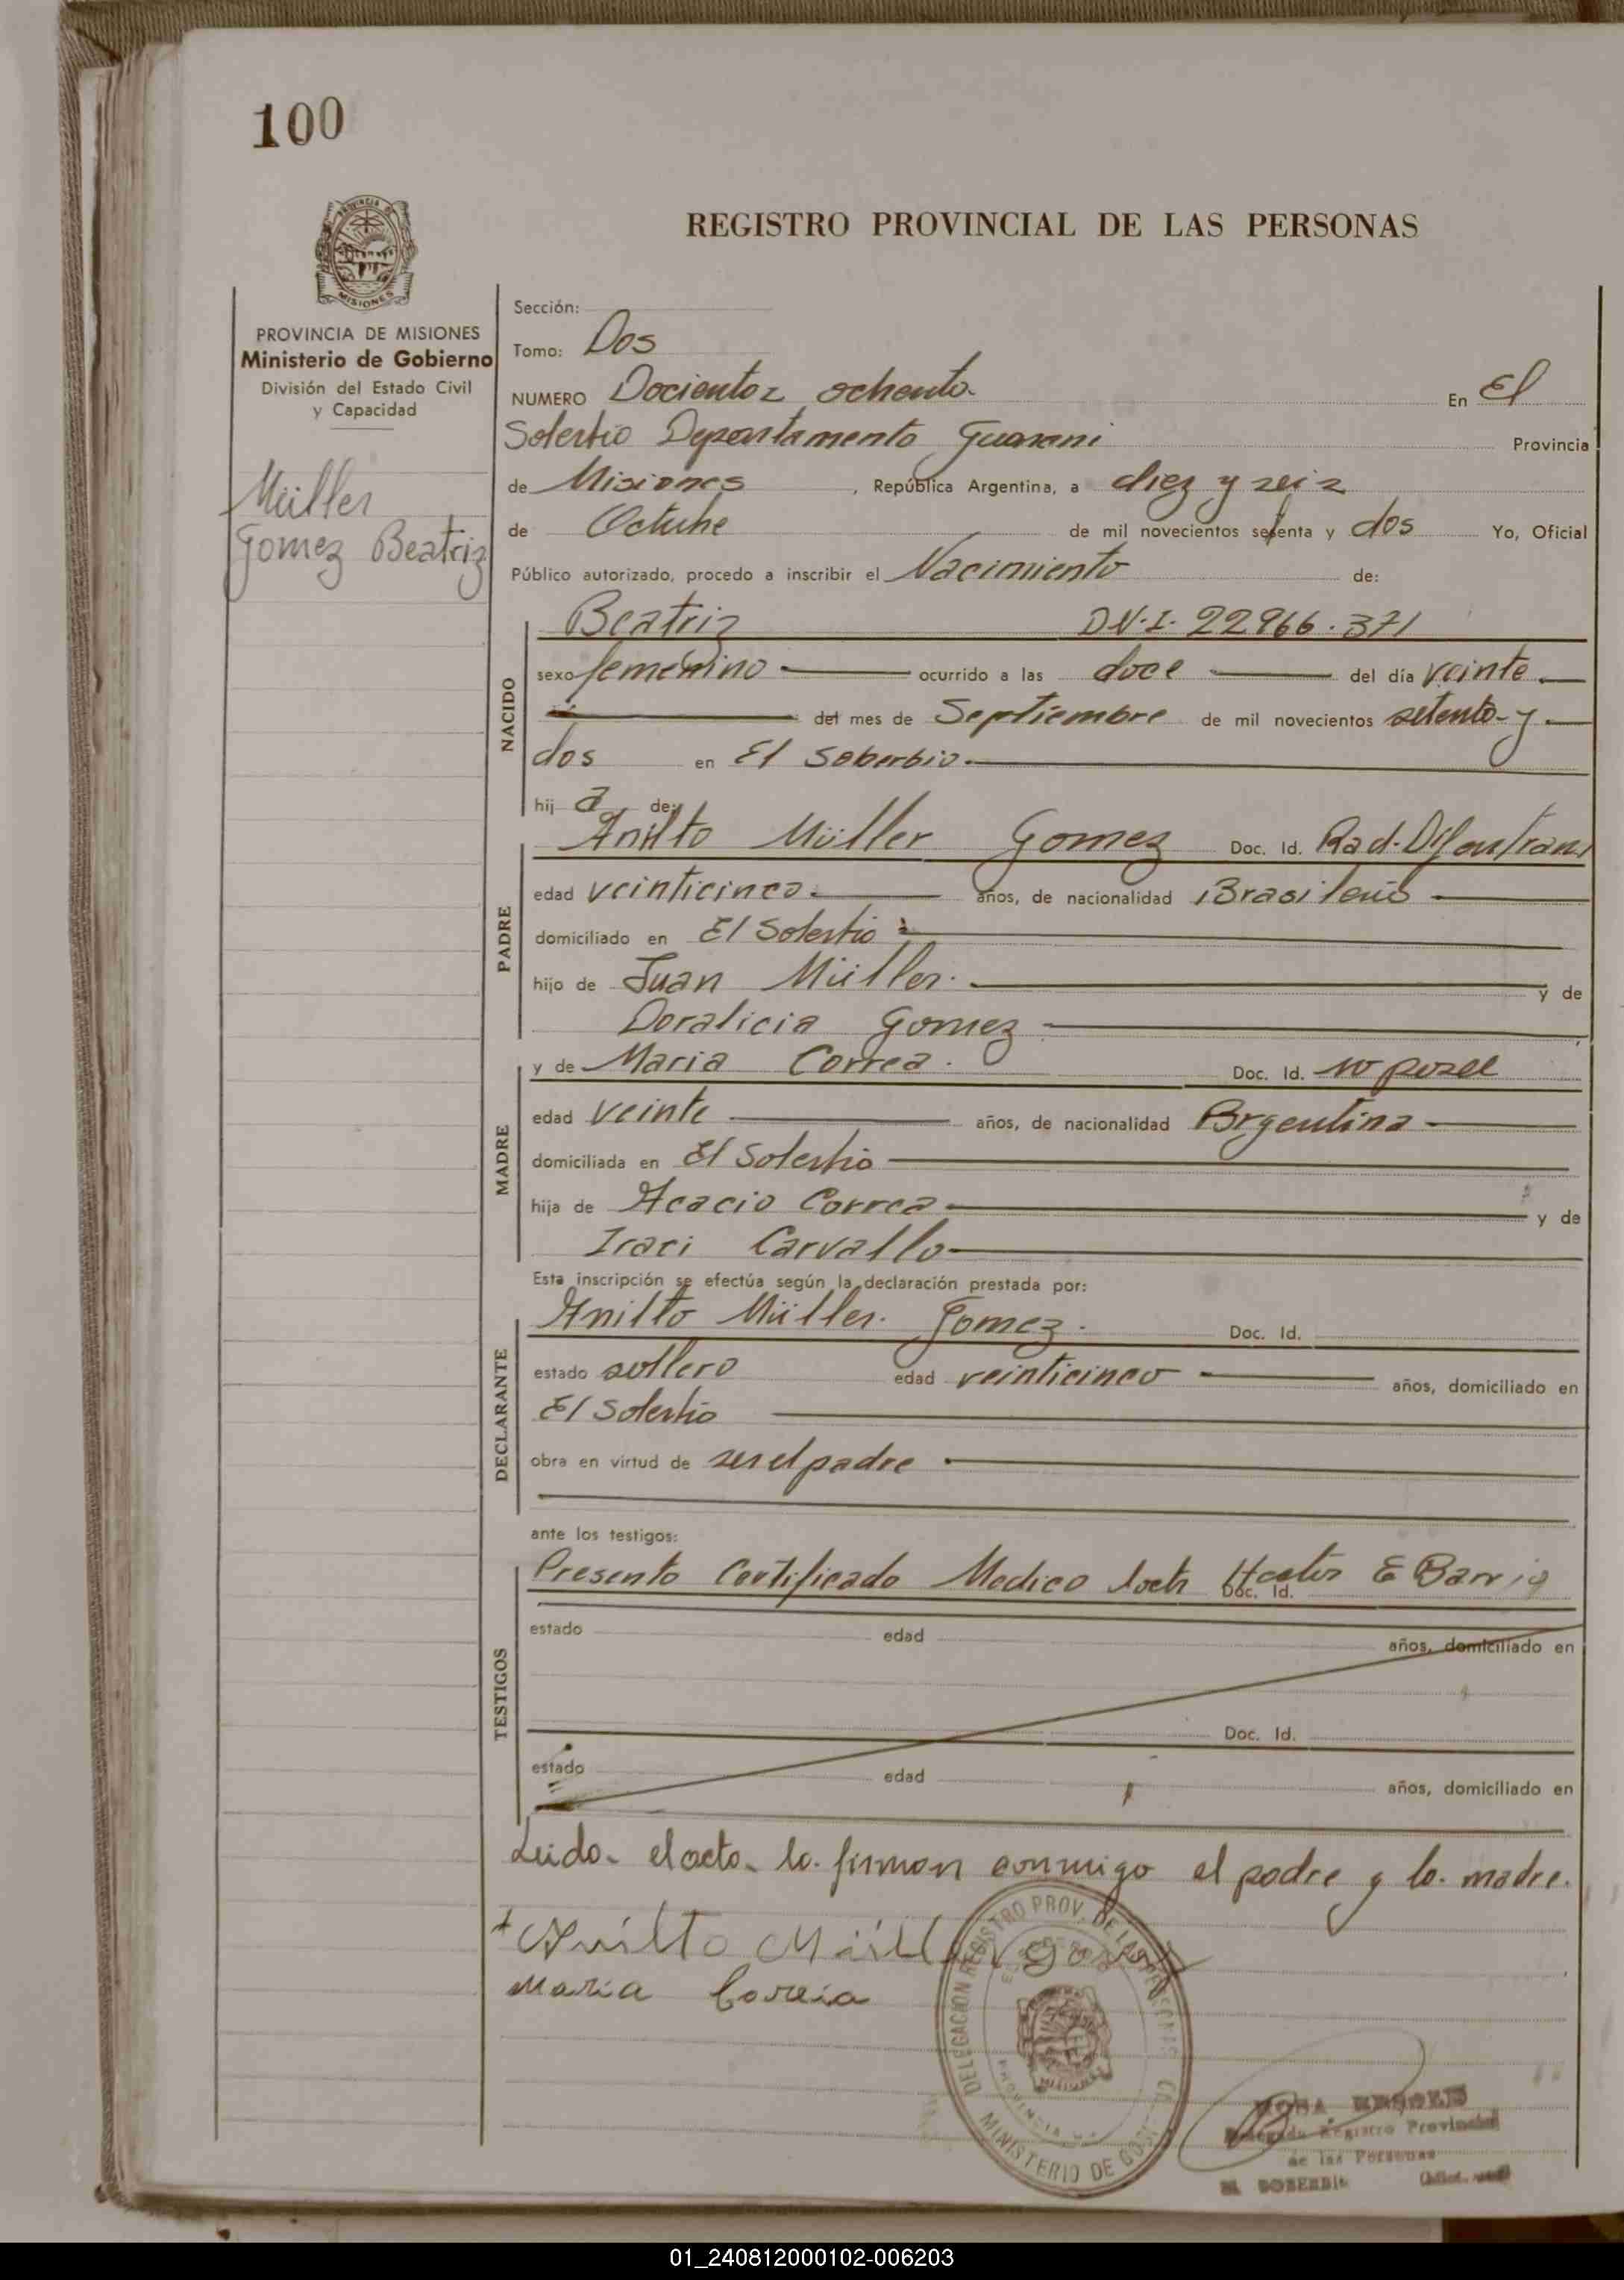 100
REGISTRO PROVINCIAL DE LAS PERSONAS
PROVINCIA DE MISIONES
Ministerio de Gobierno
División del Estado Civil
y Capacidad
Müller
Gomez Beatriz
Sección:
Tomo: Dos
NUMERO Docientoz ochenta. En El
Soberbio Departamento Guarani Provincia
de Misiones, República Argentina, a diez y seiz
de Octubre de mil novecientos setenta y dos Yo, Oficial
Público autorizado, procedo a inscribir el Nacimiento de:
NACIDO
Beatriz D.N.I. 22966.371
sexo femenino ocurrido a las doce del día veinte
del mes de Septiembre de mil novecientos setenta y
dos en El Soberbio.
hij a de:
PADRE
Anilto Müller Gomez Doc. Id. Rad.
edad veinticinco. años, de nacionalidad Brasileño
domiciliado en El Soberbio
hijo de Juan Müller. y de
Doralicia Gomez
MADRE
y de Maria Correa. Doc. Id. no posee
edad veinte años, de nacionalidad Argentina
domiciliada en El Soberbio
hija de Acacio Correa y de
Iraci Carvallo
Esta inscripción se efectúa según la declaración prestada por:
DECLARANTE
Anilto Müller. Gomez. Doc. Id.
estado soltero edad veinticinco años, domiciliado en
El Soberbio
obra en virtud de ser el padre
ante los testigos:
TESTIGOS
Presento Certificado Medico Hector E Barrio Doc. Id.
estado edad años, domiciliado en
Doc. Id.
estado edad años, domiciliado en
Leida el acta la firman conmigo el padre y la madre.
Anilto Müller Gomez
Maria Correia
DELEGACION REGISTRO PROV. DE LAS PERSONAS
MINISTERIO DE
MISIONES
Registro Provincial
de las Personas
EL SOBERBIO
01_240812000102-006203